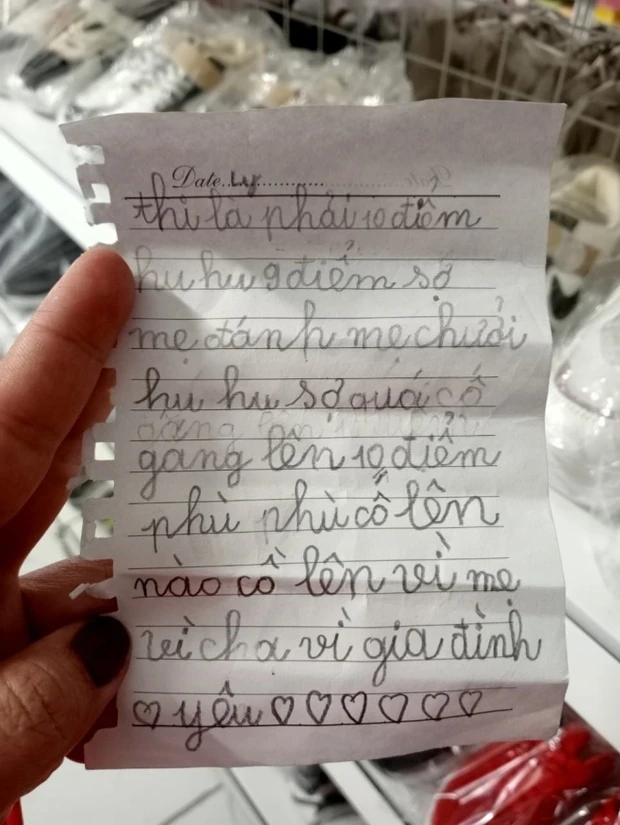 Date.. Ly
thi là phải 10 điểm
hu hu 9 điểm sợ
mẹ đánh mẹ chưởi
hu hu sợ quá cố
gang lên 10 điểm
phù phù cố lên
nào cồ lên vì mẹ
vì cha vì gia đình
♡ yêu ♡ ♡ ♡ ♡ ♡ ♡